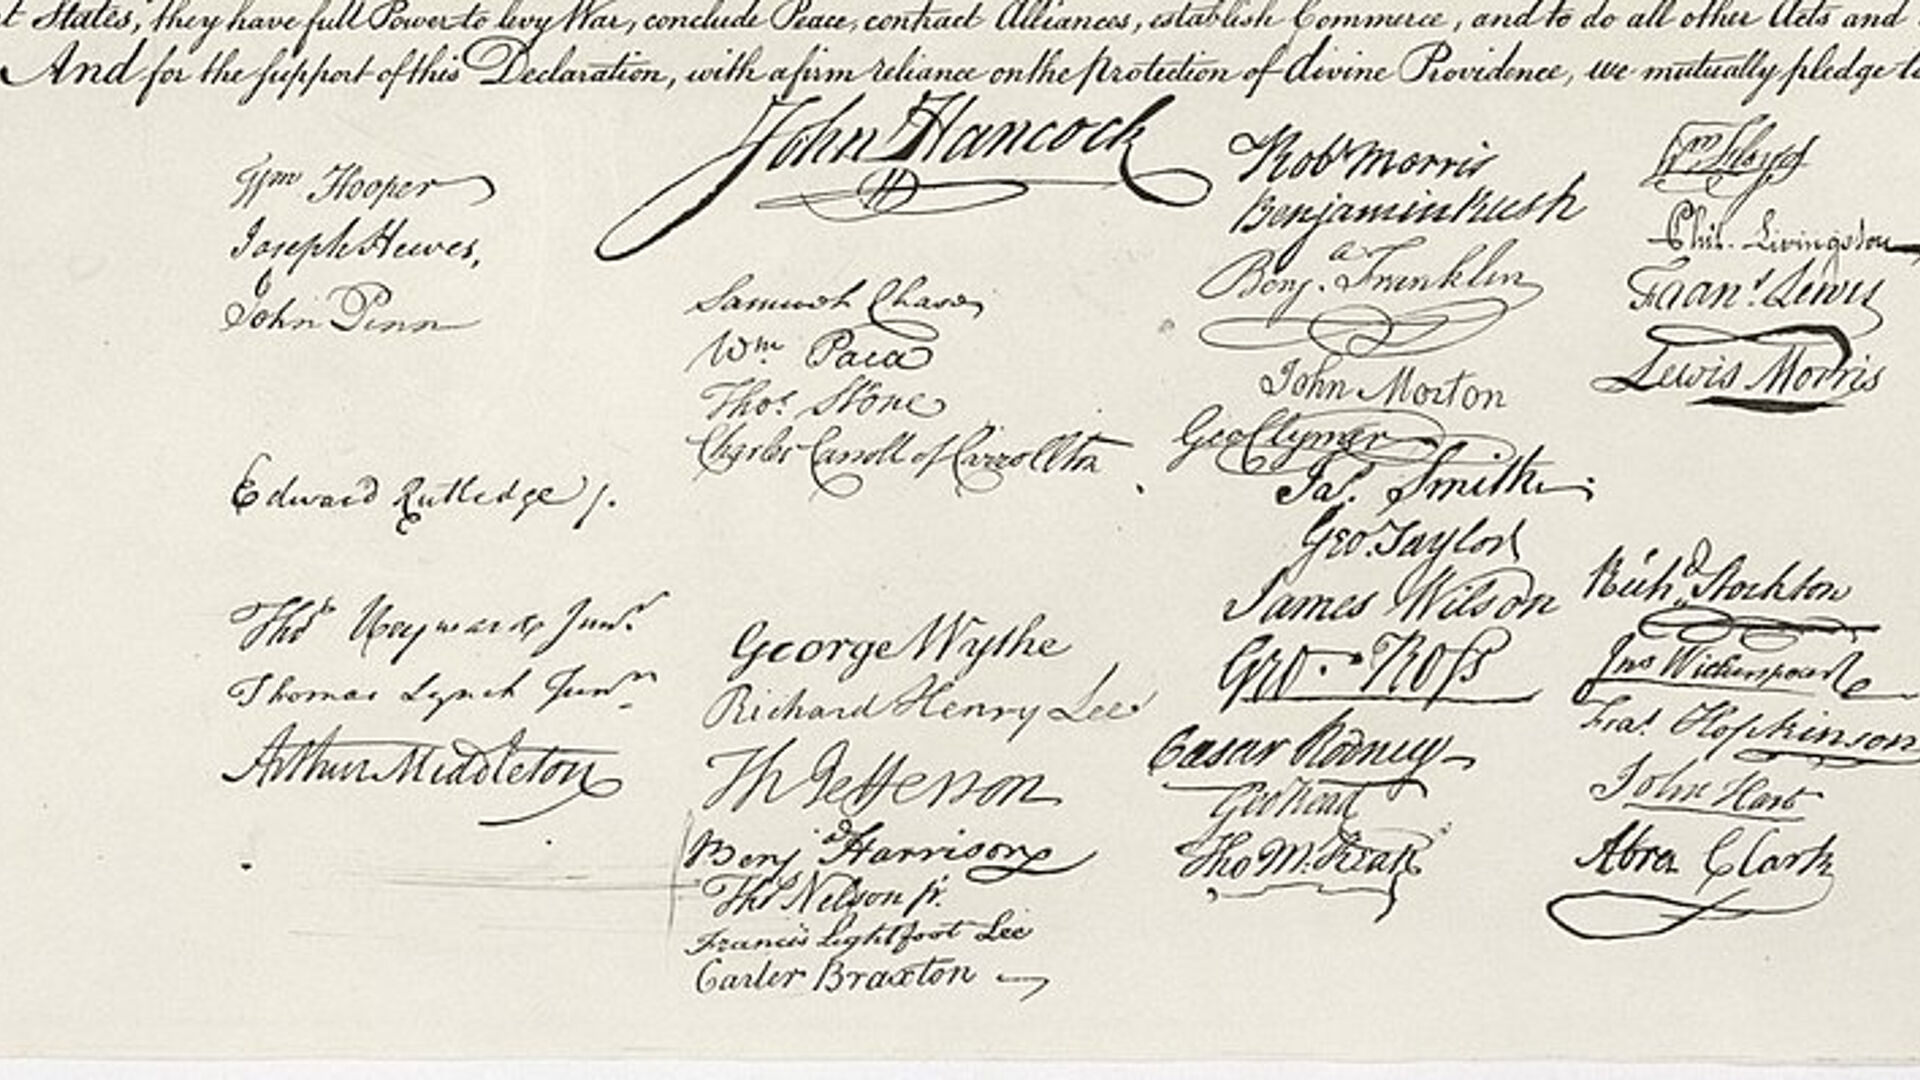 t States, they have full Power to levy War, conclude Peace, contract Alliances, establish Commerce, and to do all other Acts and
And for the support of this Declaration, with a firm reliance on the protection of divine Providence, we mutually pledge to
John Hancock
Wm Hooper
Joseph Hewes,
John Penn
Edward Rutledge /.
Thos Heyward Junr.
Thomas Lynch Junr.
Arthur Middleton
Samuel Chase
Wm. Paca
Thos. Stone
Charles Carroll of Carrollton
George Wythe
Richard Henry Lee
Th Jefferson
Benja Harrison
Thos Nelson jr.
Francis Lightfoot Lee
Carter Braxton
Robt Morris
Benjamin Rush
Benja. Franklin
John Morton
Geo Clymer
Jas. Smith
Geo. Taylor
James Wilson
Geo. Ross
Caesar Rodney
Geo Read
Tho M:Kean
Wm Floyd
Phil. Livingston
Frans. Lewis
Lewis Morris
Richd. Stockton
Jno Witherspoon
Fras. Hopkinson
John Hart
Abra Clark